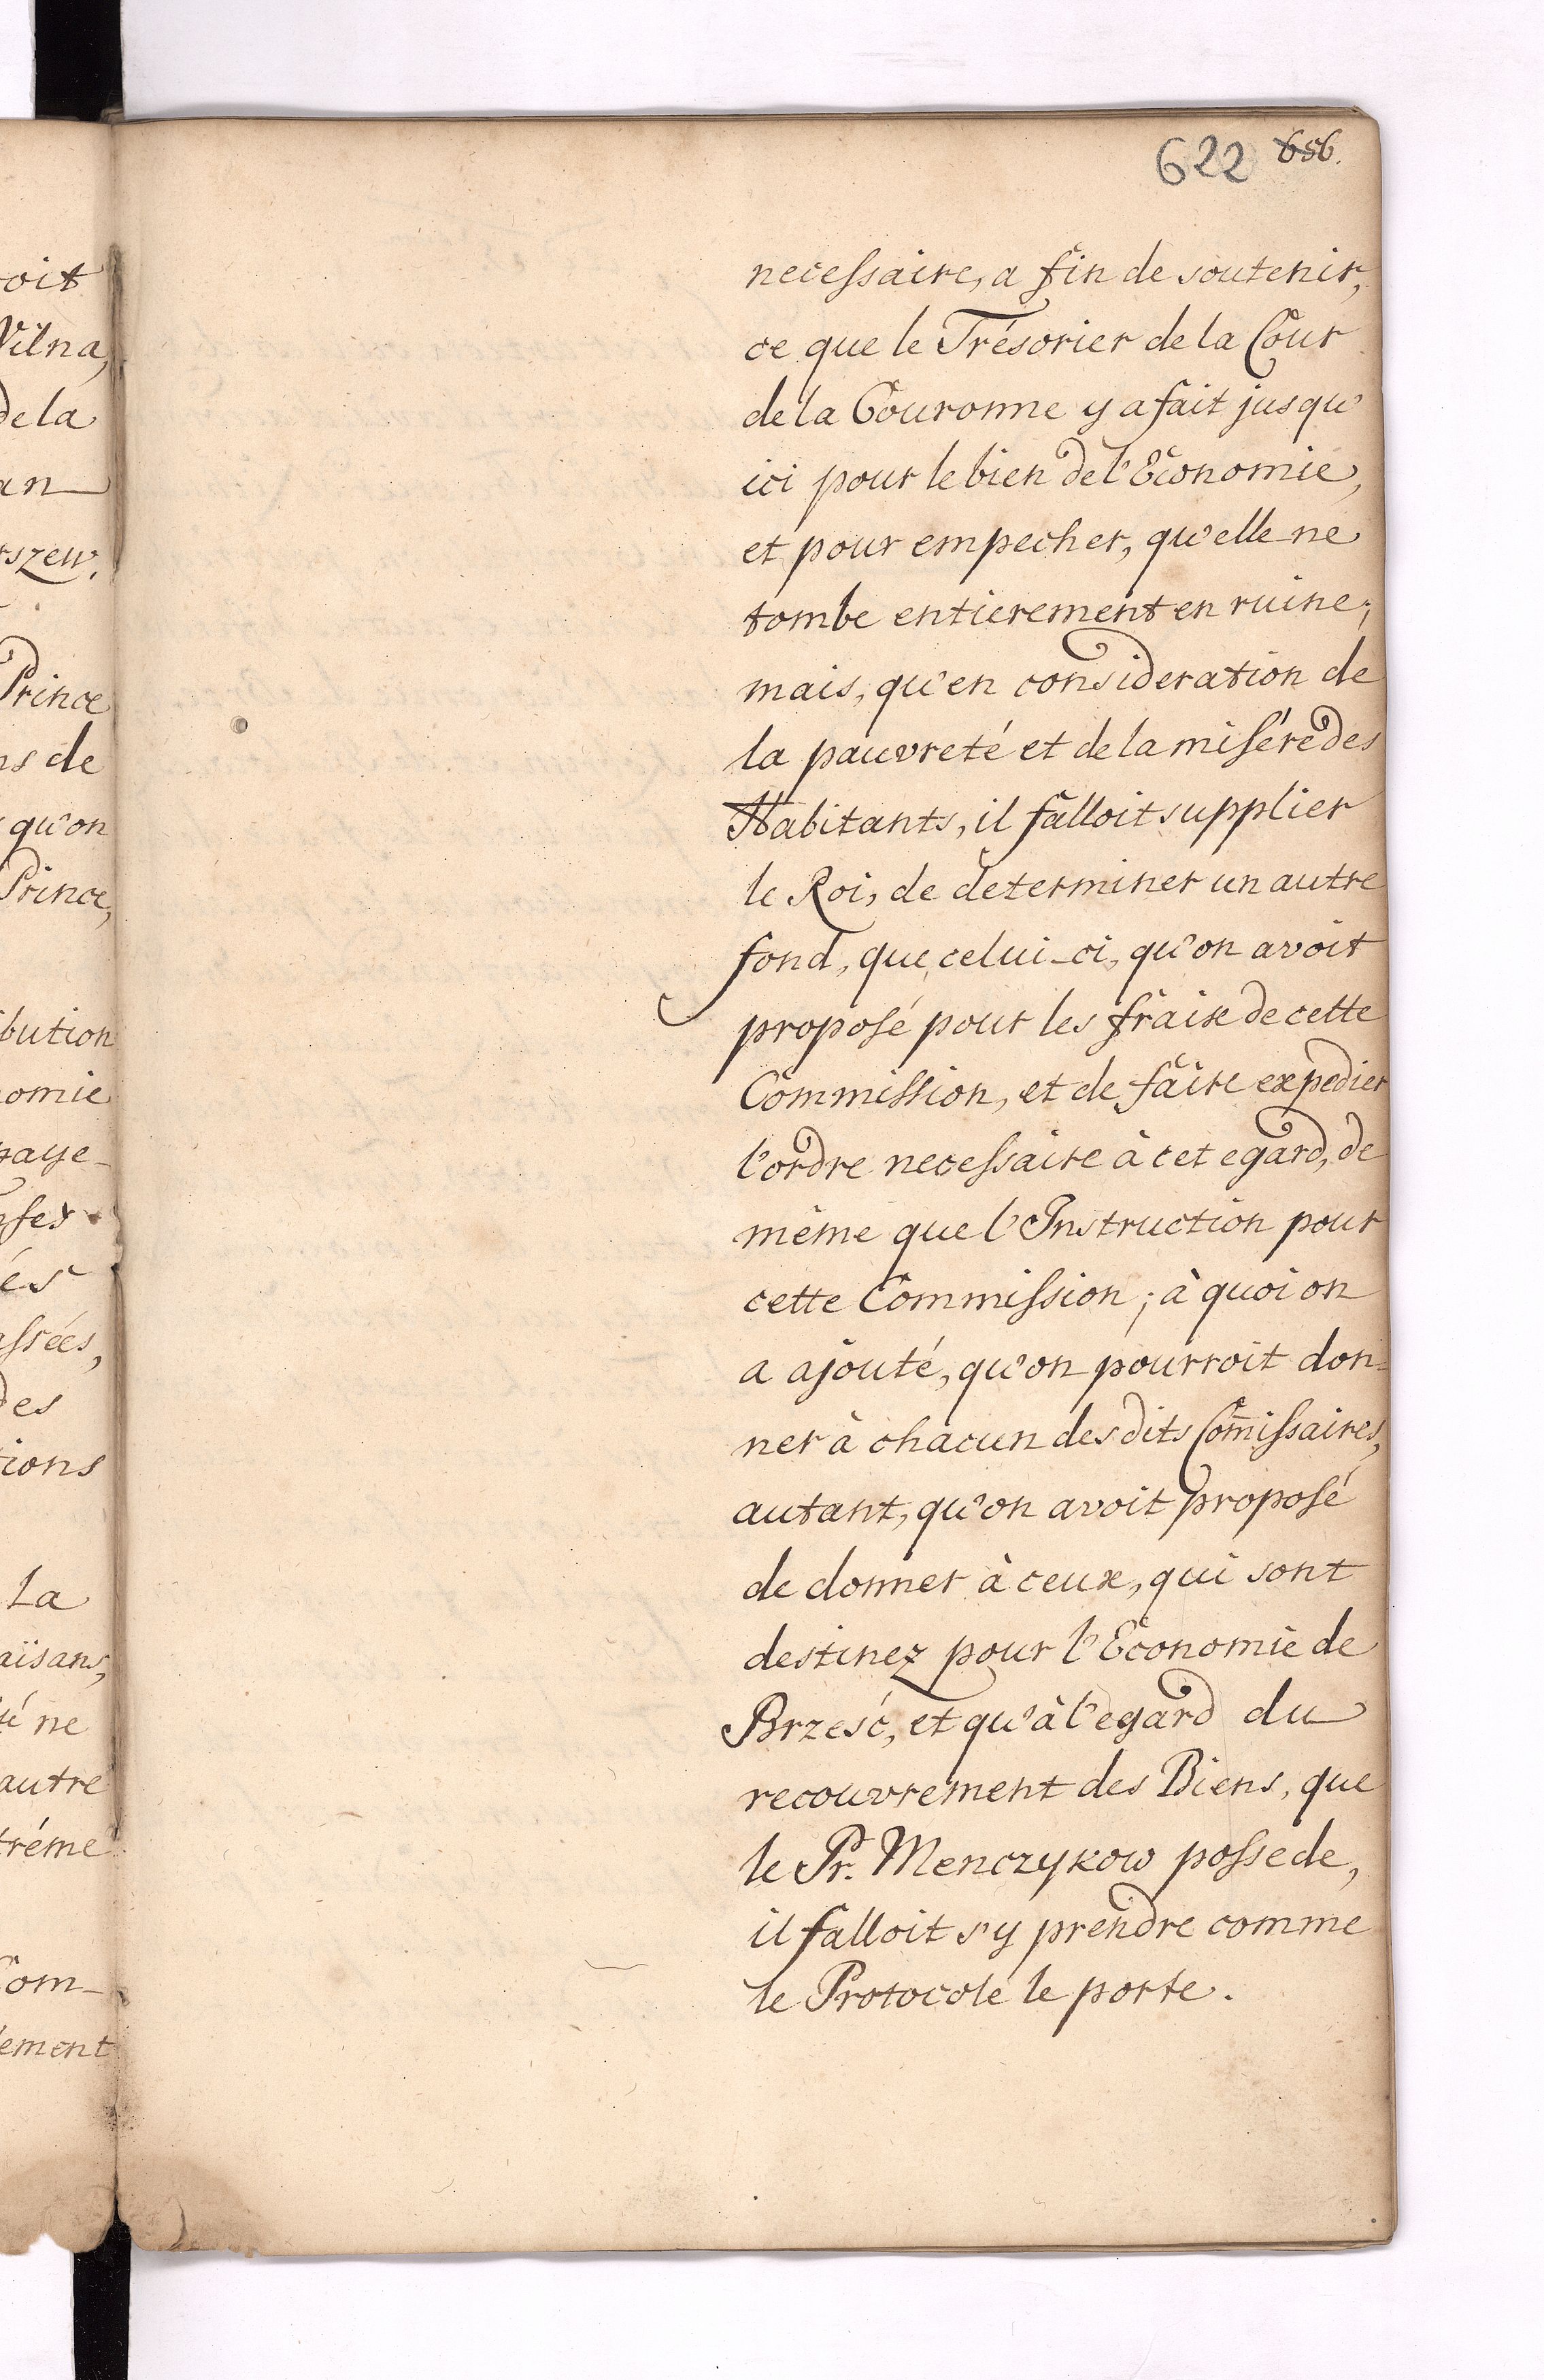 oit
Vilna,
de la
an
rszew.
Prince
ns de
qu'on
Prince,
bution
nomie
paye-
nses
és
assées,
des
tions
La
aïsans,
té ne
autre
trême
Com-
lement
622 656.
necessaire, a fin de soutenir,
ce que le Trésorier de la Cour
de la Couronne y a fait jusqu'
ici pour le bien de l'Economie,
et pour empecher, qu'elle ne
tombe entierement en ruine;
mais, qu'en consideration de
la pauvreté et de la misére des
Habitants, il falloit supplier
le Roi, de determiner un autre
fond, que celui-ci, qu'on avoit
proposé pour les fraix de cette
Commission, et de faire expedier
l'ordre necessaire à cet egard, de
même que l'Instruction pour
cette Commission; à quoi on
a ajouté, qu'on pourroit don=
ner à chacun des dits Com̄issaires,
autant, qu'on avoit proposé
de donner à ceux, qui sont
destinez pour l'Economie de
Brześć, et qu'à l'egard du
recouvrement des Biens, que
le Pr. Menczykow possede,
il falloit s'y prendre comme
le Protocole le porte.